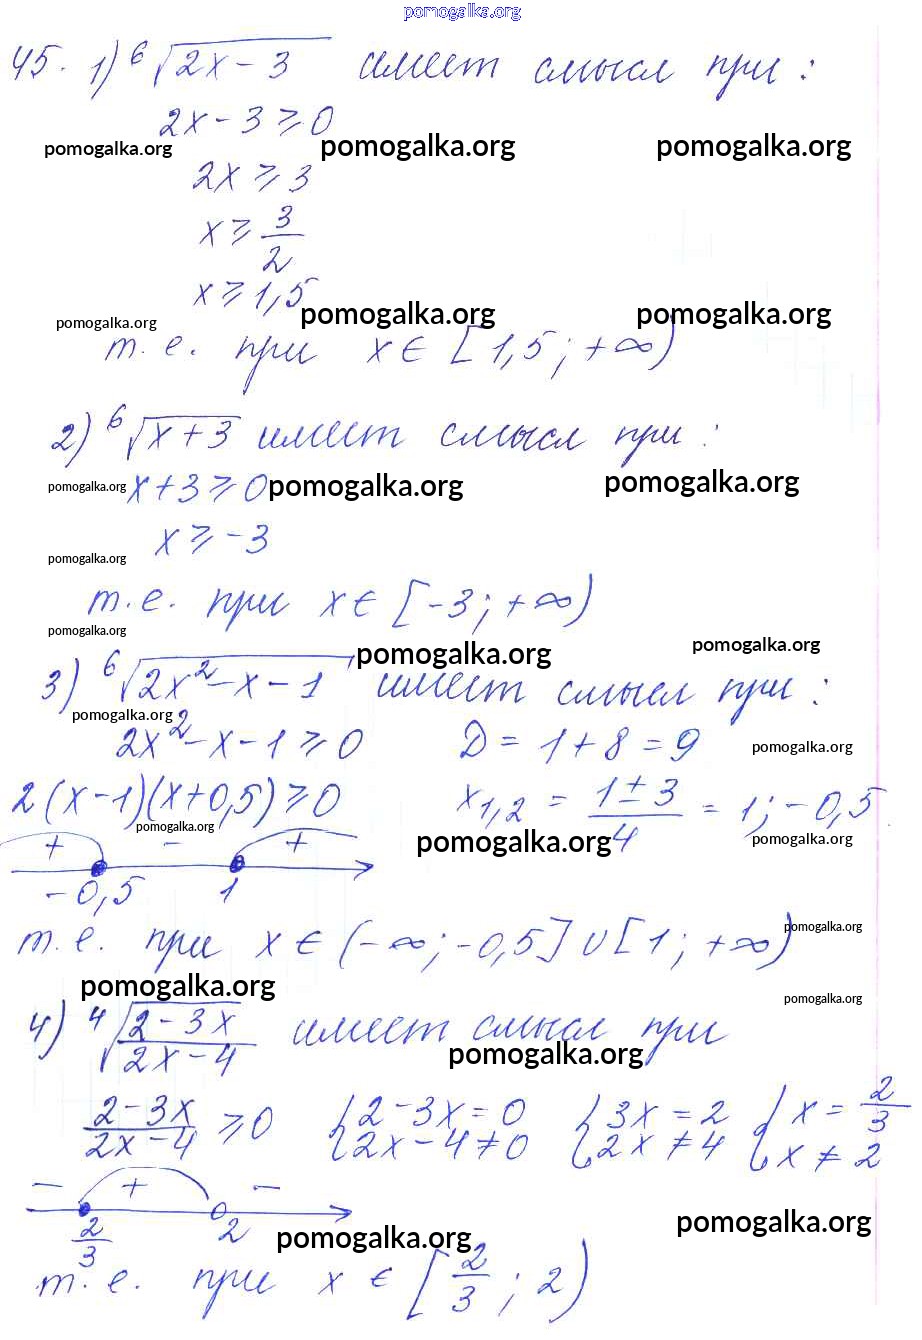 pomogalka.org
45. 1) ⁶√(2x-3) имеет смысл при:
2x-3⩾0
pomogalka.org pomogalka.org pomogalka.org
2x⩾3
x⩾3/2
x⩾1,5
pomogalka.org pomogalka.org pomogalka.org
т.е. при x∈[1,5;+∞)
2) ⁶√(x+3) имеет смысл при:
pomogalka.org x+3⩾0 pomogalka.org pomogalka.org
x⩾-3
pomogalka.org
т.е. при x∈[-3;+∞)
pomogalka.org pomogalka.org pomogalka.org
3) ⁶√(2x²-x-1) имеет смысл при:
pomogalka.org
2x²-x-1⩾0 D=1+8=9 pomogalka.org
2(x-1)(x+0,5)⩾0 x₁,₂ = (1±3)/4 = 1;-0,5
pomogalka.org pomogalka.org pomogalka.org
+ - +
-0,5 1
pomogalka.org
т.е. при x∈(-∞;-0,5]∪[1;+∞)
pomogalka.org pomogalka.org
4) ⁴√((2-3x)/(2x-4)) имеет смысл при
pomogalka.org
(2-3x)/(2x-4) ⩾0 {2-3x=0 {3x=2 {x=2/3
{2x-4≠0 {2x≠4 {x≠2
- + -
2/3 2
pomogalka.org pomogalka.org
т.е. при x∈[2/3;2)